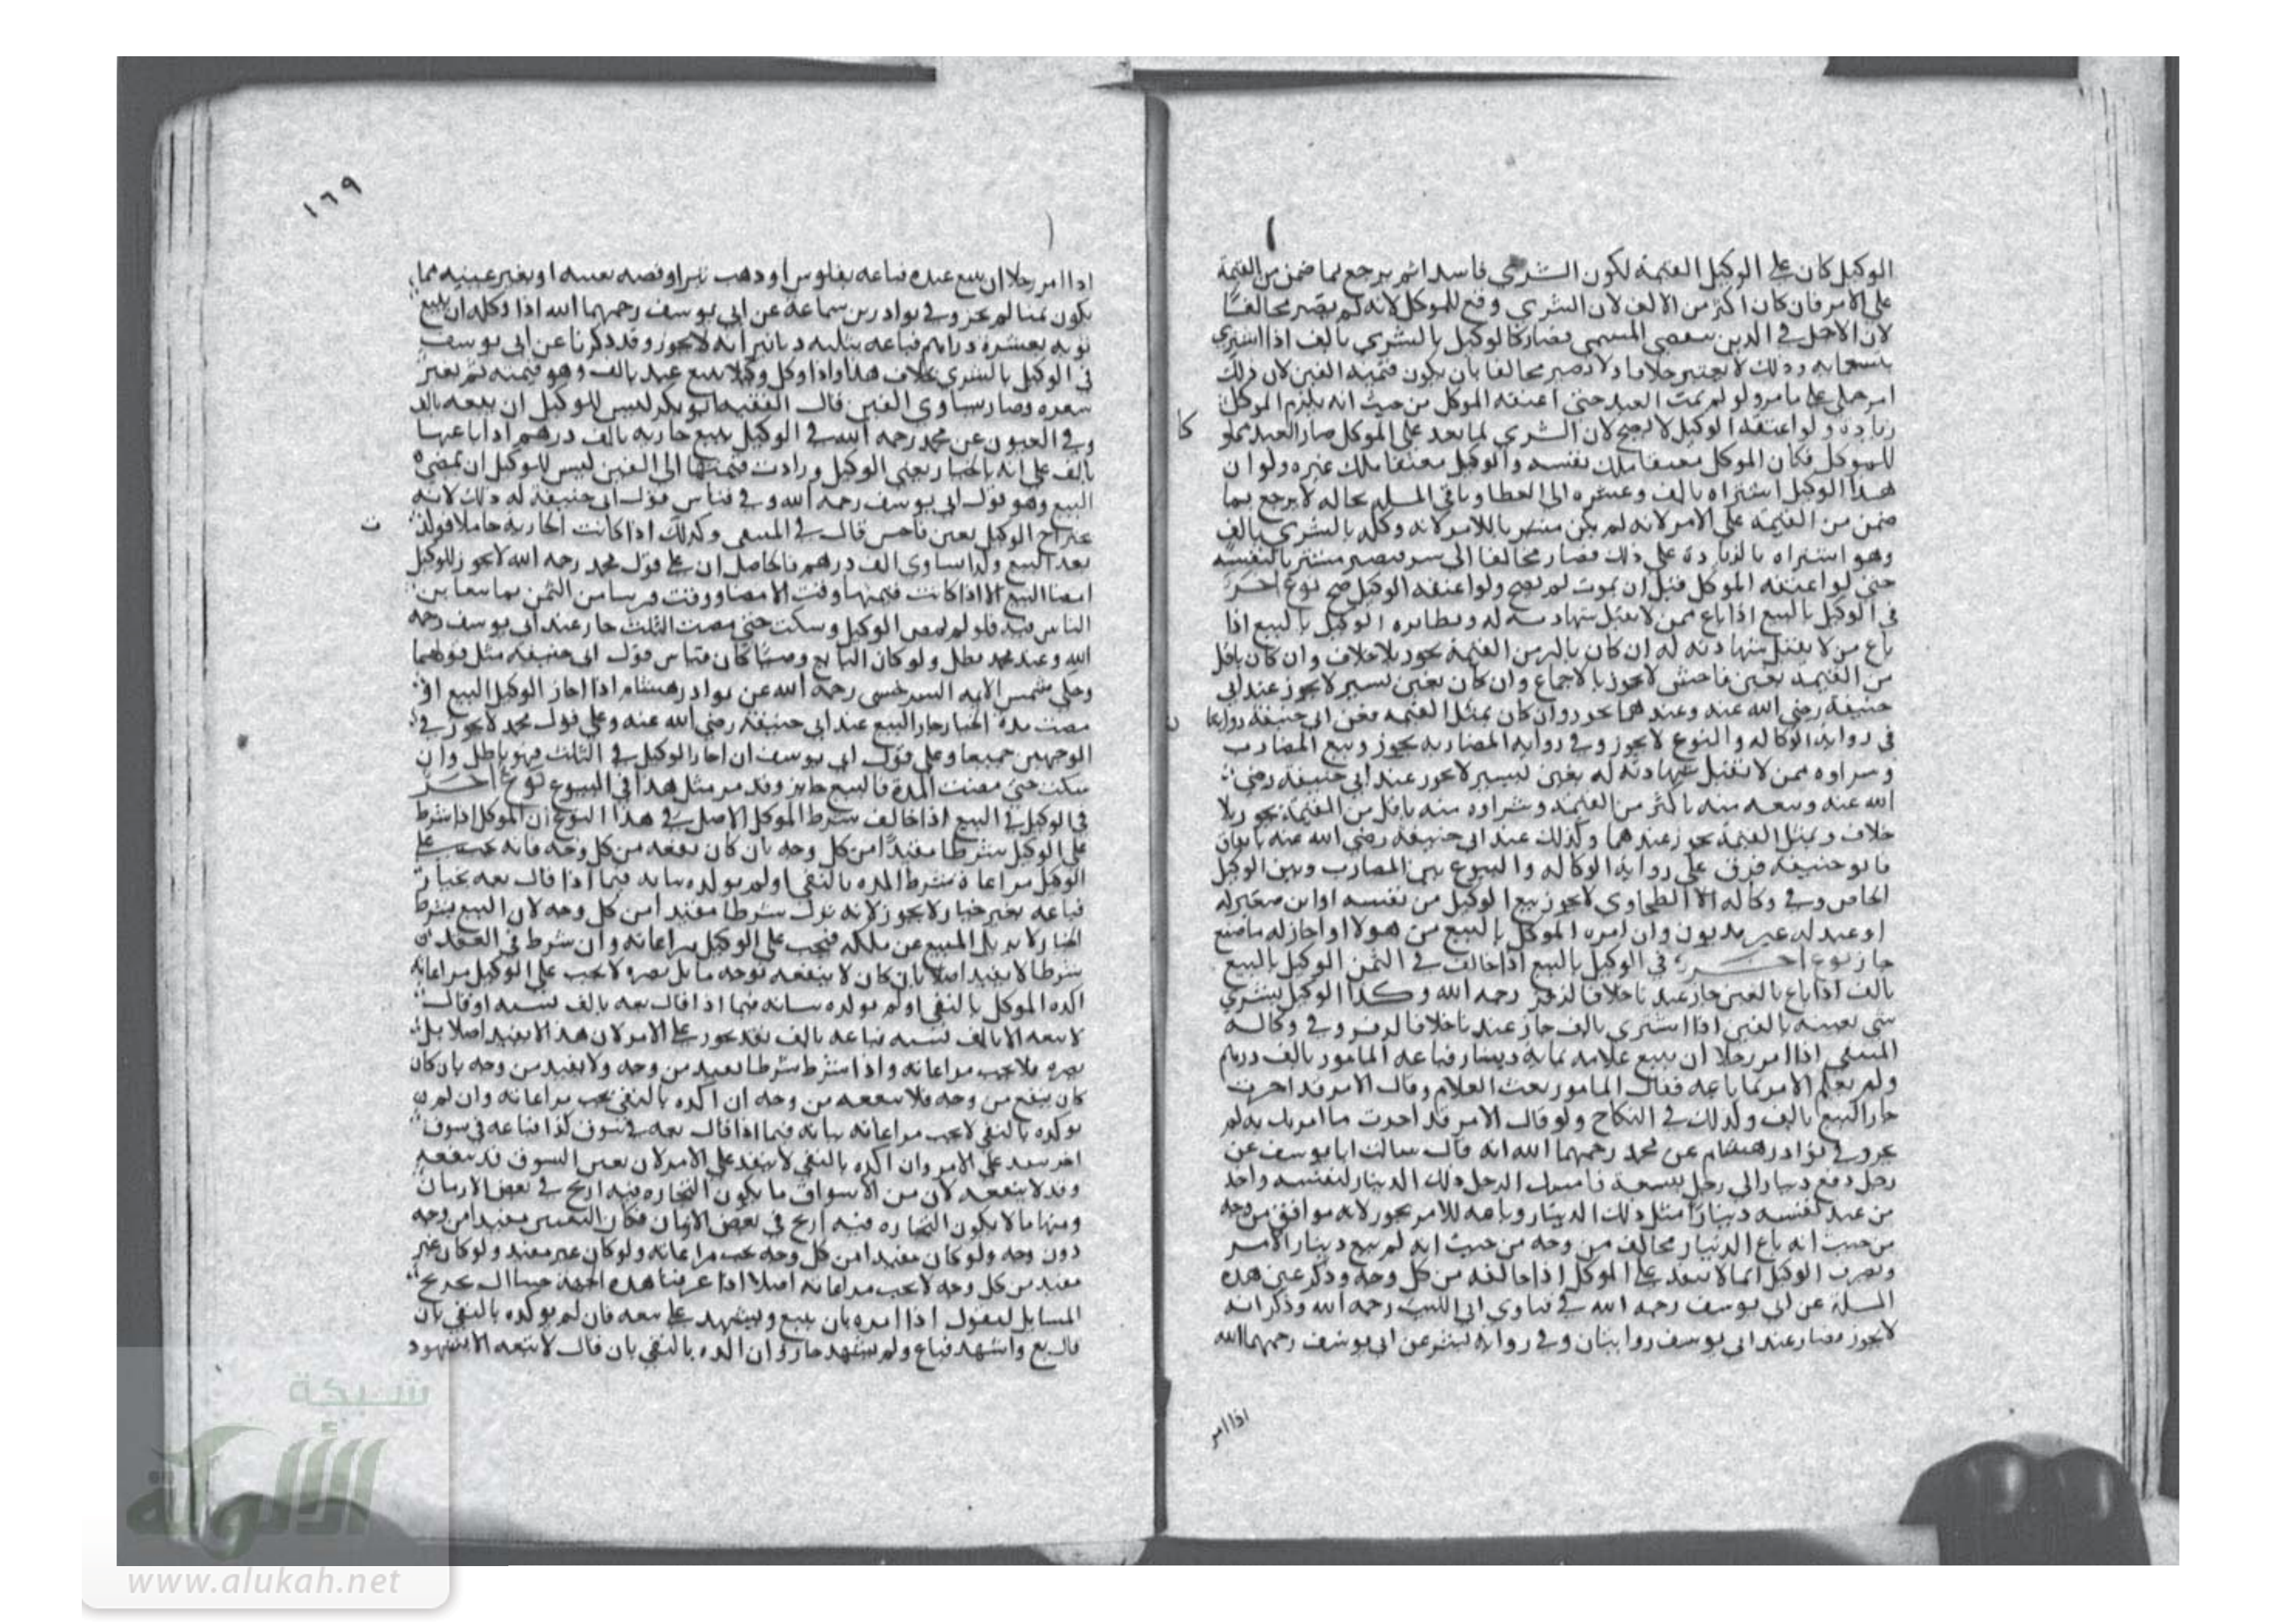 الوكيل كان على الوكيل القيمة لكون الشرى فاسدا ثم يرجع بما ضمن من القيمة
على الامر فان كان اكثر من الالف لان الشرى وقع للموكل لانه لم يصر مخالفا
لان الاجل في الدين بعض المسمى فصار كالوكيل بالشرى بالف اذا اشترى
بتسعمايه وذلك لا يعتبر خلافا ولا يصير مخالفا بان يكون قيمته الفين لان ذلك
امر جلي على ما مر ولو لم يمت العبد حتى اعتقه الموكل من حيث انه يلزم الموكل
زيادة ولو اعتقه الوكيل لا يصح لان الشرى لما نفد على الموكل صار العبد مملو
كا
للموكل فكان الموكل معتقا ملك نفسه والوكيل معتقا ملك غيره ولو ان
هذا الوكيل اشتراه بالف وعشره الى العطا وباقي المسله بحاله لا يرجع بما
ضمن من القيمة على الامر لانه لم يكن مشتريا للامر لانه وكله بالشرى بالف
وهو اشتراه بالزيادة على ذلك فصار مخالفا الى شر فيصير مشتريا لنفسه
حتى لو اعتقه الموكل قبل ان يموت لم يصح ولو اعتقه الوكيل صح نوع اخر
في الوكيل بالبيع اذا باع ممن لا يقبل شهادته له ونظايره الوكيل بالبيع اذا
باع من لا يقبل شهادته له ان كان باكثر من القيمة يجوز بلا خلاف وان كان باقل
من القيمه بغبن فاحش لا يجوز بالاجماع وان كان بغبن يسير لا يجوز عند ابي
حنيفة رضي الله عنه وعندهما يجوز وان كان بمثل القيمه فعن ابي حنيفة روايتا
ن
في رواية الوكاله والبيوع لا يجوز وفي رواية المضاربه يجوز وبيع المضارب
وشراوه ممن لا تقبل شهادته له بغبن يسير لا يجوز عند ابي حنيفة رضي
الله عنه وبيعه منه باكثر من القيمه وشراوه منه باقل من القيمة يجوز بلا
خلاف وبمثل القيمة يجوز عندهما وكذلك عند ابي حنيفة رضي الله عنه باتفاق
فابو حنيفة فرق على رواية الوكاله والبيوع بين المضارب وبين الوكيل
الخاص وفي وكالة الطحاوي لا يجوز بيع الوكيل من نفسه او ابن صغير له
او عبد له غير مديون وان امره الموكل بالبيع من هولا او اجاز له ما صنع
جاز نوع اخر في الوكيل بالبيع اذا خالف في الثمن الوكيل بالبيع
بالف اذا باع بالفين جاز عندنا خلافا لزفر رحمه الله وكذا الوكيل بشرى
شي بعينه بالفين اذا اشترى بالف جاز عندنا خلافا لزفر وفي وكالة
المنتقى اذا امر رجلا ان يبيع غلامه بمايه دينار فباعه المامور بالف درهم
ولم يعلم الامر بما باعه فقال المامور بعت الغلام وقال الامر قد اجزت
جاز البيع بالف وكذلك في النكاح ولو قال الامر قد اجزت ما امرتك به لم
يجز وفي نوادر هشام عن محمد رحمهما الله انه قال سالت ابا يوسف عن
رجل دفع دينارا الى رجل ببيعه فامسك الرجل ذلك الدينار لنفسه واخذ
من عند نفسه دينارا مثل ذلك الدينار وباعه للامر يجوز لانه موافق من وجه
من حيث انه باع الدينار مخالف من وجه من حيث انه لم يبع دينار الامر
وتصرف الوكيل انما لا ينفد على الموكل اذا خالفه من كل وجه وذكر عين هذه
المسلة عن ابي يوسف رحمه الله في فتاوى ابي الليث رحمه الله وذكر انه
لا يجوز فصار عند ابي يوسف روايتان وفي رواية لبشر عن ابي يوسف رحمهما الله
اذا امر
١٦٩
اذا امر رجلا ان يبيع عبده فباعه بفلوس او ذهب تبر او فضه بعينه او بغير عينه مما
يكون ثمنا لم يجز وفي نوادر بن سماعة عن ابي يوسف رحمهما الله اذا وكله ان يبيع
ثوبه بعشرة دراهم فباعه بثلثه دنانير انه لا يجوز وقد ذكرنا عن ابي يوسف
في الوكيل بالشرى بخلاف هذا واذا وكل وكيلا ببيع عبد بالف وهو قيمته ثم تغير
سعره وصار يساوي الفين قال الفقيه ابو بكر ليس للوكيل ان يبيعه بالف
وفي العيون عن محمد رحمه الله في الوكيل ببيع جاريه بالف درهم اذا باعها
بالف على انه بالخيار يعني الوكيل وزادت قيمتها الى الفين ليس للوكيل ان يمضي
البيع وهو قول ابي يوسف رحمه الله وفي قياس قول ابي حنيفة له ذلك لانه
عنده الوكيل بغبن فاحش قال في المنتقى وكذلك اذا كانت الجارية حاملا فولد
ت
بعد البيع ولدا يساوي الف درهم فالحاصل ان على قول محمد رحمه الله لا يجوز للوكيل
امضا البيع الا اذا كانت قيمتها وقت الامضا ووقت قريبا من الثمن بما يتغابن
الناس فيه فلو لم يمض الوكيل وسكت حتى مضت الثلث جاز عند ابي يوسف رحمه
الله وعند محمد بطل ولو كان البايع وصيا كان قياس قول ابي حنيفة مثل قولهما
وحكى شمس الايمه السرخسى رحمه الله عن نوادر هشام اذا اجاز الوكيل البيع او
مضت مدة الخيار جاز البيع عند ابي حنيفة رضي الله عنه وعلى قول محمد لا يجوز في
الوجهين جميعا وعلى قول ابي يوسف ان اجاز الوكيل في الثلث فهو باطل وان
سكت حتى مضت المدة فالبيع جايز وقد مر مثل هذا في البيوع نوع اخر
في الوكيل في البيع اذا خالف شرط الموكل الاصل في هذا النوع ان الموكل اذا شرط
على الوكيل شرطا مفيدا من كل وجه بان كان ينفعه من كل وجه فانه يجب على
الوكيل مراعاة شرطه اكده بالنفي او لم يوكده بيانه فيما اذا قال بعه بخيار
فباعه بغير خيار لا يجوز لانه ترك شرطا مفيدا من كل وجه لان البيع بشرط
الخيار لا يزيل المبيع عن ملكه فيجب على الوكيل مراعاته وان شرط في العقد
شرطا لا يفيد اصلا بان كان لا ينفعه بوجه ما بل يضره لا يجب على الوكيل مراعاته
اكده الموكل بالنفي او لم يوكده بيانه فيما اذا قال بعه بالف نسيه او قال
لا تبعه الا بالف نسيه فباعه بالف نقد يجوز على الامر لان هذا لا يفيد اصلا بل
يضره فلا يجب مراعاته واذا شرط شرطا يفيد من وجه ولا يفيد من وجه بان كان
كان ينفع من وجه فلا ينفعه من وجه ان اكده بالنفي يجب مراعاته وان لم
يوكده بالنفي لا يجب مراعاته بيانه فيما اذا قال بعه في سوق كذا فباعه في سوق
اخر ينفد على الامر وان اكده بالنفي لا ينفد على الامر لان بعض السوق قد ينفعه
وقد لا ينفعه لان من الاسواق ما يكون التجاره فيه اربح في بعض الازمان
ومنها ما لا يكون التجاره فيه اربح في بعض الازمان فكان التعيين مفيدا من وجه
دون وجه ولو كان مفيدا من كل وجه يجب مراعاته ولو كان غير مفيد ولو كان غير
مفيد من كل وجه لا يجب مراعاته اصلا اذا عرفنا هذه الجملة جينا الى تخريج
المسايل لنقول اذا امره بان يبيع ويشهد على بيعه فان لم يوكده بالنفي بان
قال بع واشهد فباع ولم يشهد جاز وان اكده بالنفي بان قال لا تبعه الا بشهود
شبكة
الألوكة
www.alukah.net